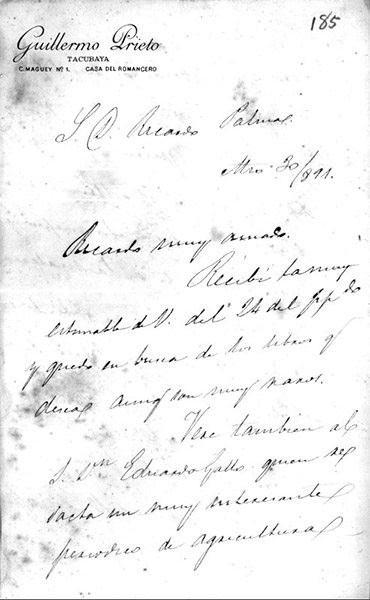 185
Guillermo Prieto
TACUBAYA
C. MAGUEY Nº 1. CASA DEL ROMANCERO
S. D. Ricardo Palma
Mzo 30/891.
Ricardo muy amado.
Recibí la muy
estimable de V. del 24 del ppdo
y quedo en busca de los libros q
desea aunq son muy raros.
Veré también al
S. Dn Eduardo Gallo quien re
dacta un muy interesante
periódico de agricultura